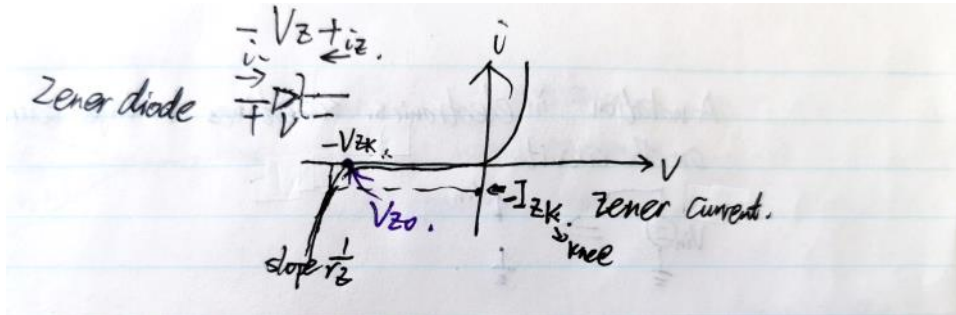 - Vz + iz.
i
Zener diode
+ V -
i
-VZK.
V
VZ0.
-IZK. Zener Current.
knee
slope 1/rz